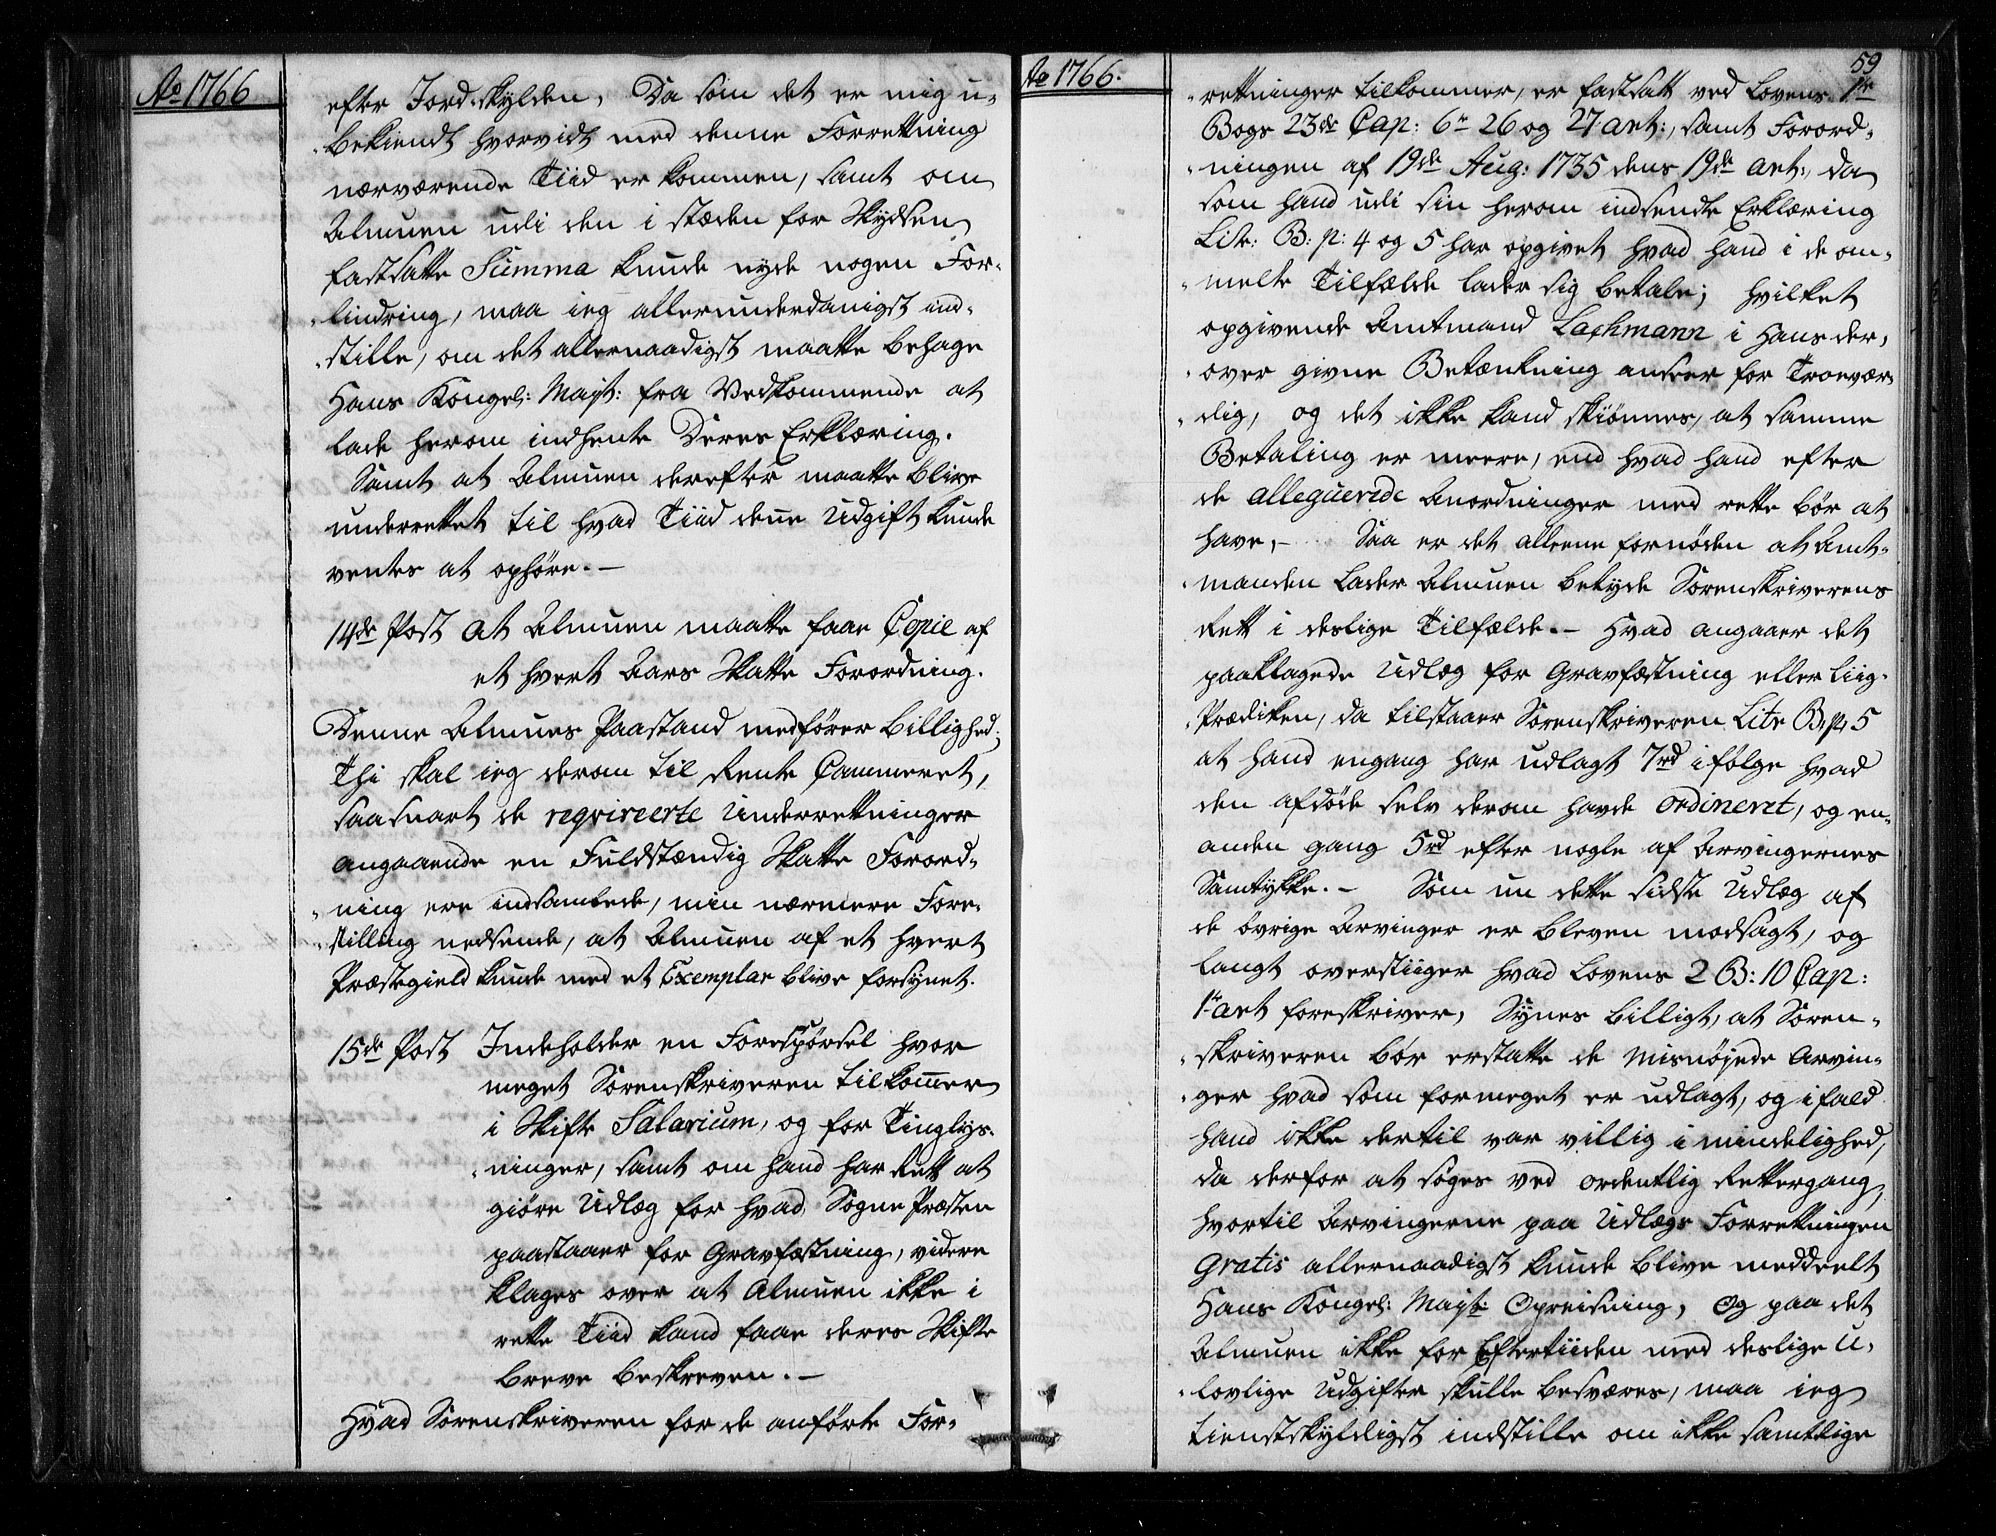 Ao 1766
efter Jord-skylden, Da som det er mig u-
bekiendt hvorvidt med denne Forretning
nærværende Tiid er kommen, samt om
Almuen udi den i stæden for Skydsen
fastsatte Summa kunde nyde nogen For-
lindring, maa ieg allerunderdanigst ind-
stille, om det allernaadigst maatte behage
Hans Kongel: Mayt: fra Vedkommende at
lade herom indhente Deres Erklæring.
Samt at Almuen derefter maatte blive
underrettet til hvad Tiid denne Udgift kunde
ventes at ophøre.-
14de Post At Almuen maatte faae Copie af
et hvert Aars Skatte Forordning.
Denne Almues Paastand medfører billighed;
Thi skal ieg derom til Rente Cammeret,
saasnart de reqvireerte Underretninger
angaaende en Fuldstændig Skatte Forord-
ning ere indsamlede, min nærmere Fore-
stilling nedsende, at Almuen af et hvert
Præstegield kunde med et Exemplar blive forsynet.
15de Post Indeholder en Forespørsel hvor
meget Sorenskriveren tilkommer
i Skifte Salarium, og for Tinglys-
ninger, samt om hand har Rett at
giøre Udlæg for hvad Sogne Præsten
paastaaer for Gravfæstning, videre
klages over at Almuen ikke i
rette Tiid kand faae deres Skifte
Breve beskreven.-
Hvad Sorenskriveren for de anførte For-
Ao 1766.
59
rettninger tilkommer, er fastsatt ved Lovens 1te
Bogs 23de Cap: 6te 26 og 27 art:, samt Forord-
ningen af 19de Aug: 1735 dens 19de art:, da
som hand udi sin herom indsendte Erklæring
Litr: B: p: 4 og 5 har opgivet hvad hand i de om-
melte Tilfælde lader sig betale; hvilket
opgivende Amtmand Lachmann i Hans der-
over givne Betænkning anseer for Troevær-
dig, og det ikke kand skiønnes, at samme
Betaling er meere, end hvad hand efter
de alleguerede Anordninger med rette bør at
have,- Saa er det alleene fornøden at Amt-
manden Lader Almuen betyde Sorenskriverens
Rett i deslige Tilfælde.- Hvad angaaer det
paaklagede Udlæg for Gravfæstning eller Liig-
Prædiken, da tilstaaer Sorenskriveren Litr B: p: 5
at hand engang har udlagt 7rd ifølge hvad
den afdøde selv derom havde ordineret, og en-
anden gang 5rd efter nogle af Arvingernes
Samtykke.- Som nu dette sidste Udlæg af
de øvrige Arvinger er bleven modsagt, og
langt overstiiger hvad Lovens 2 B: 10 Cap:
1te art foreskriver, Synes billigt, at Soren-
skriveren bør erstatte de misnøjede Arvin-
ger hvad som formeget er udlagt, og ifald
hand ikke dertil var villig i mindelighed,
da derfor at søges ved ordentlig Rettergang,
hvortil Arvingerne paa Udlægs Forretningen
gratis allernaadigst kunde blive meddeelt
Hans Kongel: Mayts: Opreisning, Og paa det
Almuen ikke for Eftertiiden med deslige u-
lovlige Udgifter skulle besværes, maa ieg
tienstskyldigst indstille om ikke samtlige